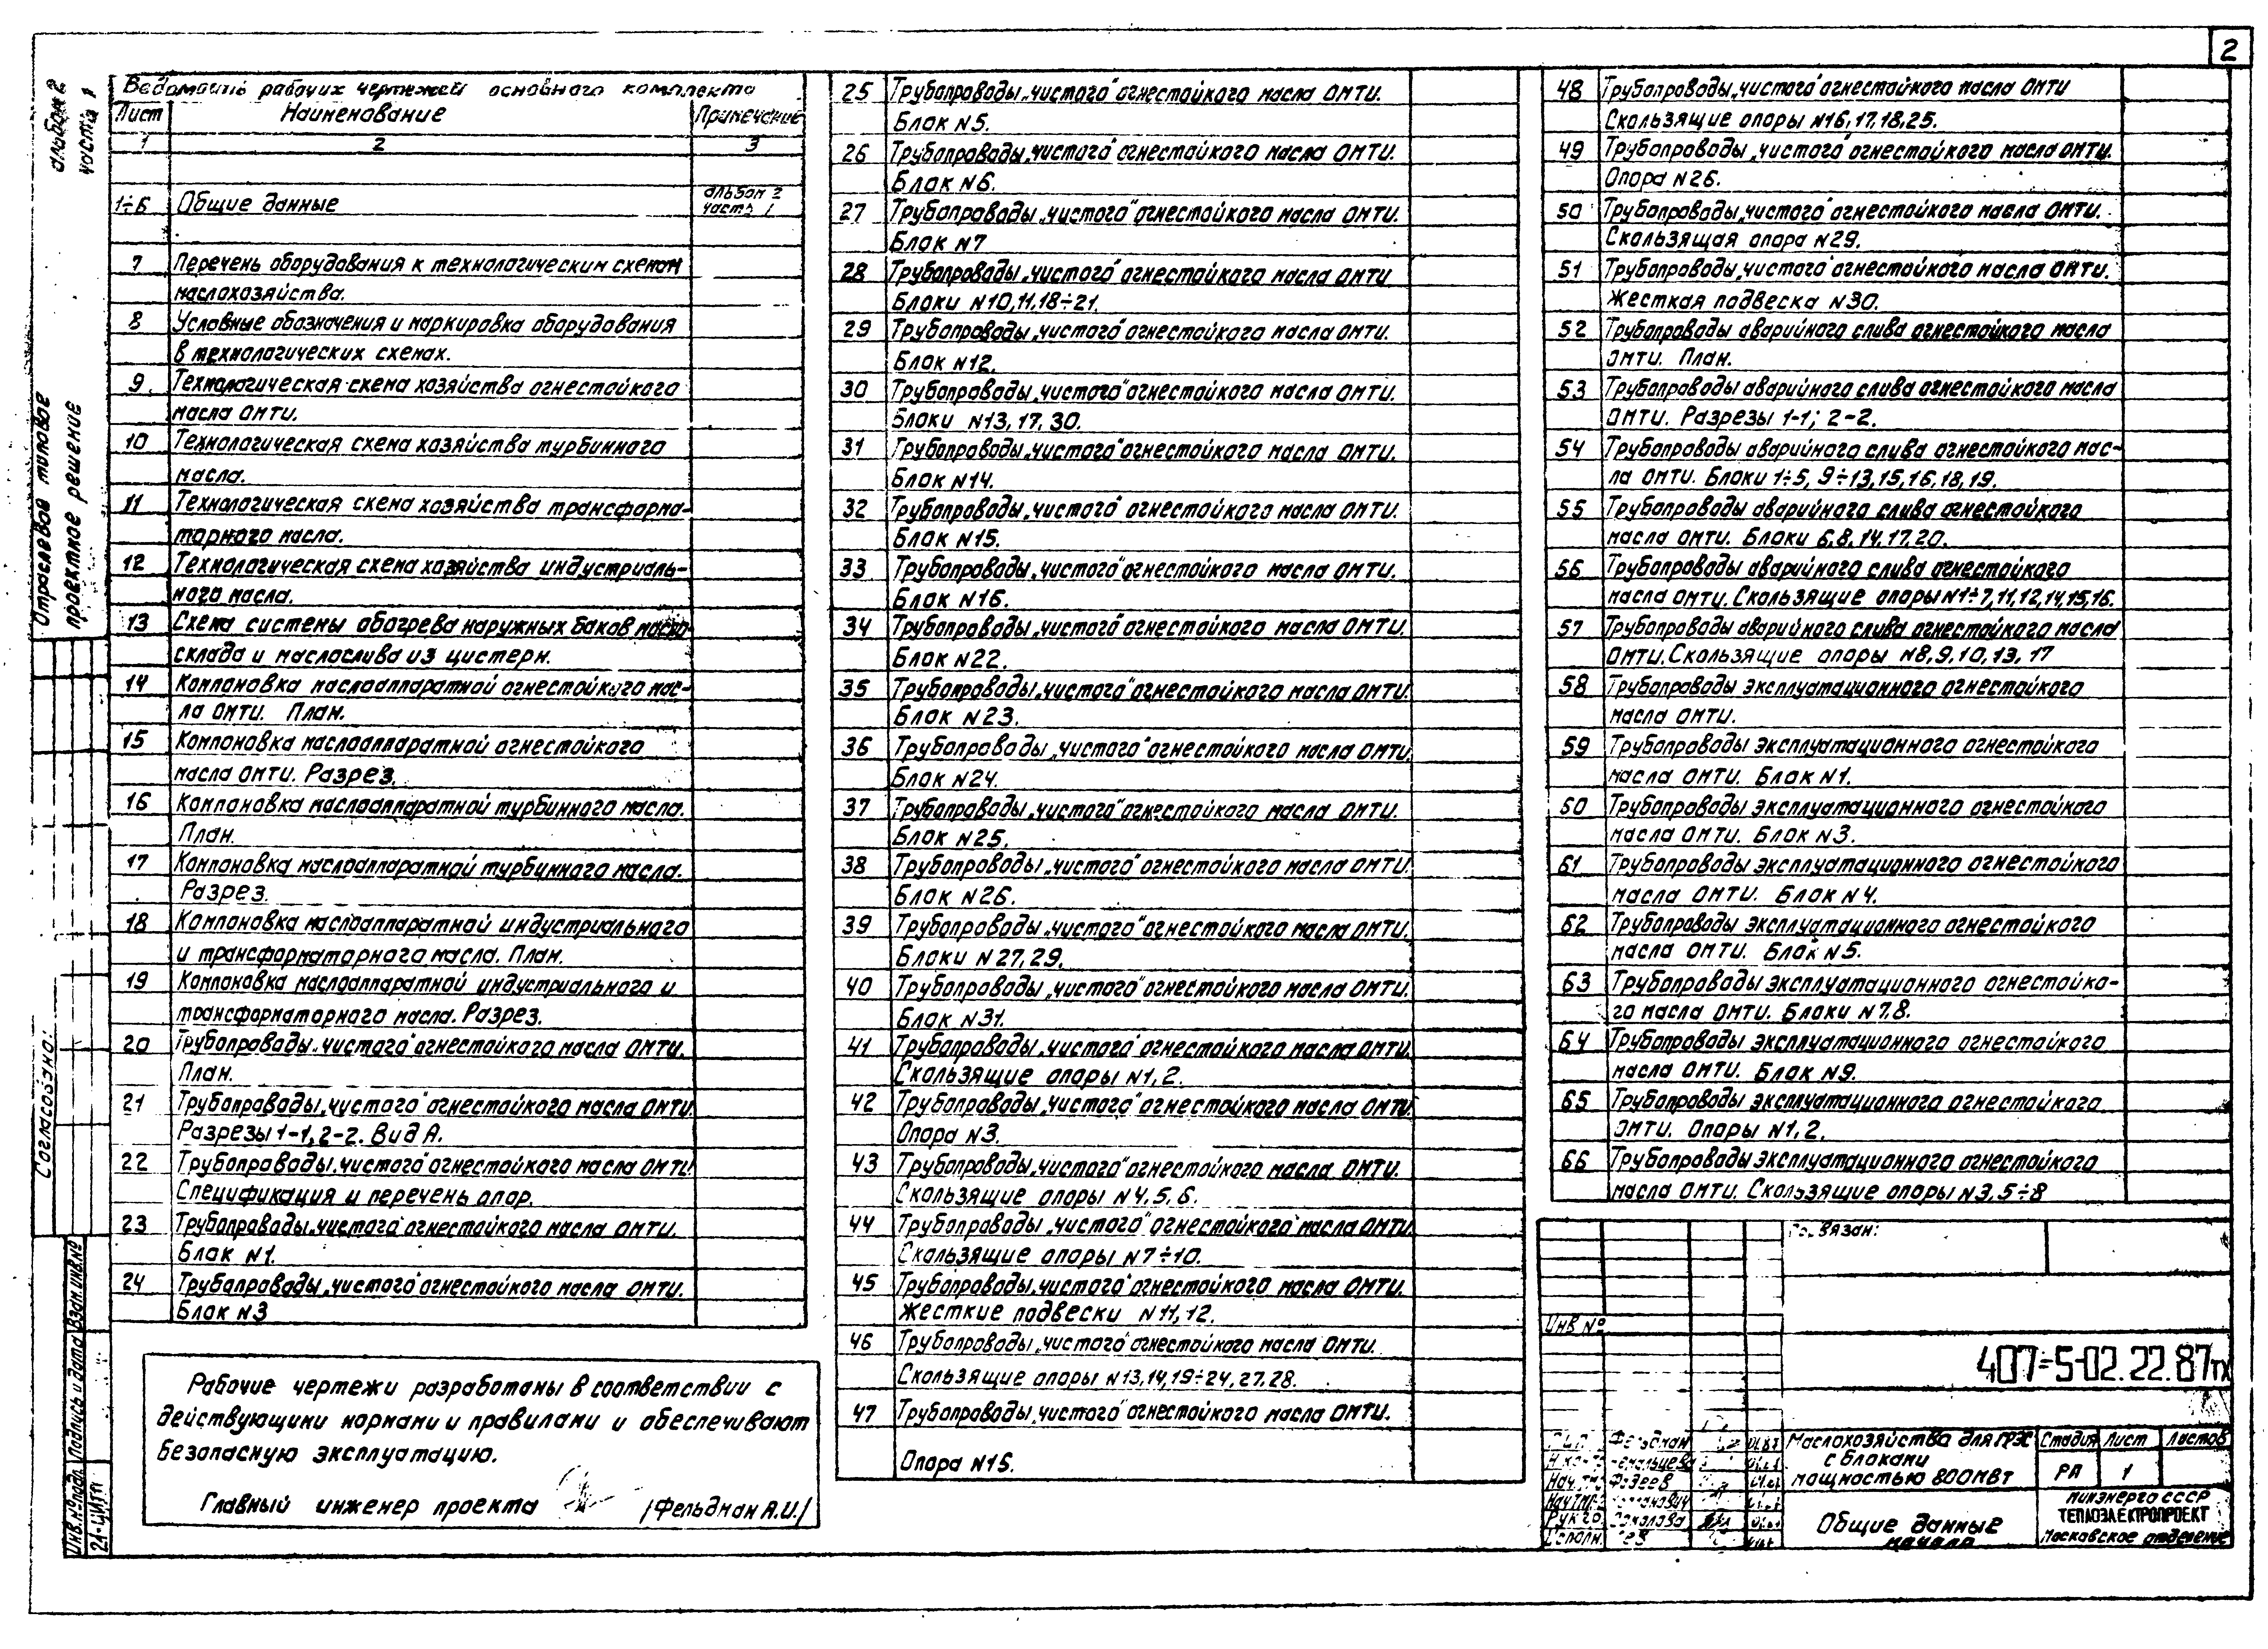 2
альбом 2
часть 1
Отраслевое типовое
проектное решение
Согласовано:
Инв.№ подл. Подпись и дата Взам.инв.№
Ведомость рабочих чертежей основного комплекта
Лист Наименование Примечание
1 2 3
1÷6 Общие данные альбом 2 часть 1
7 Перечень оборудования к технологическим схемам
маслохозяйства.
8 Условные обозначения и маркировка оборудования
в технологических схемах.
9. Технологическая схема хозяйства огнестойкого
масла ОМТИ.
10 Технологическая схема хозяйства турбинного
масла.
11 Технологическая схема хозяйства трансформа-
торного масла.
12 Технологическая схема хозяйства индустриаль-
ного масла.
13 Схема системы обогрева наружных баков масло-
склада и маслослива из цистерн.
14 Компоновка маслоаппаратной огнестойкого мас-
ла ОМТИ. План.
15 Компоновка маслоаппаратной огнестойкого
масла ОМТИ. Разрез.
16 Компоновка маслоаппаратной турбинного масла.
План.
17 Компоновка маслоаппаратной турбинного масла.
Разрез.
18 Компоновка маслоаппаратной индустриального
и трансформаторного масла. План.
19 Компоновка маслоаппаратной индустриального и
трансформаторного масла. Разрез.
20 Трубопроводы „чистого" огнестойкого масла ОМТИ.
План.
21 Трубопроводы „чистого" огнестойкого масла ОМТИ.
Разрезы 1-1, 2-2. Вид А.
22 Трубопроводы „чистого" огнестойкого масла ОМТИ
Спецификация и перечень опор.
23 Трубопроводы „чистого" огнестойкого масла ОМТИ.
Блок N1.
24 Трубопроводы „чистого" огнестойкого масла ОМТИ.
Блок N3
Рабочие чертежи разработаны в соответствии с
действующими нормами и правилами и обеспечивают
безопасную эксплуатацию.
Главный инженер проекта /Фельдман А.И./
25 Трубопроводы „чистого" огнестойкого масла ОМТИ.
Блок N5.
26 Трубопроводы „чистого" огнестойкого масла ОМТИ.
Блок N6.
27 Трубопроводы „чистого" огнестойкого масла ОМТИ.
Блок N7
28 Трубопроводы „чистого" огнестойкого масла ОМТИ
Блоки N10, 11, 18÷21.
29 Трубопроводы „чистого" огнестойкого масла ОМТИ.
Блок N12.
30 Трубопроводы „чистого" огнестойкого масла ОМТИ.
Блоки N13, 17, 30.
31 Трубопроводы „чистого" огнестойкого масла ОМТИ.
Блок N14.
32 Трубопроводы „чистого" огнестойкого масла ОМТИ.
Блок N15.
33 Трубопроводы „чистого" огнестойкого масла ОМТИ.
Блок N16.
34 Трубопроводы „чистого" огнестойкого масла ОМТИ.
Блок N22.
35 Трубопроводы „чистого" огнестойкого масла ОМТИ.
Блок N23.
36 Трубопроводы „чистого" огнестойкого масла ОМТИ.
Блок N24.
37 Трубопроводы „чистого" огнестойкого масла ОМТИ.
Блок N25.
38 Трубопроводы „чистого" огнестойкого масла ОМТИ.
Блок N26.
39 Трубопроводы „чистого" огнестойкого масла ОМТИ.
Блоки N27, 29.
40 Трубопроводы „чистого" огнестойкого масла ОМТИ.
Блок N31.
41 Трубопроводы „чистого" огнестойкого масла ОМТИ.
Скользящие опоры N1, 2.
42 Трубопроводы „чистого" огнестойкого масла ОМТИ
Опора N3.
43 Трубопроводы „чистого" огнестойкого масла ОМТИ.
Скользящие опоры N4, 5, 6.
44 Трубопроводы „чистого" огнестойкого масла ОМТИ.
Скользящие опоры N7÷10.
45 Трубопроводы „чистого" огнестойкого масла ОМТИ.
Жесткие подвески N11, 12.
46 Трубопроводы „чистого" огнестойкого масла ОМТИ.
Скользящие опоры N13, 14, 19÷24, 27, 28.
47 Трубопроводы „чистого" огнестойкого масла ОМТИ.
Опора N15.
48 Трубопроводы „чистого" огнестойкого масла ОМТИ
Скользящие опоры N16, 17, 18, 25.
49 Трубопроводы „чистого" огнестойкого масла ОМТИ.
Опора N26.
50 Трубопроводы „чистого" огнестойкого масла ОМТИ.
Скользящая опора N29.
51 Трубопроводы „чистого" огнестойкого масла ОМТИ.
Жесткая подвеска N30.
52 Трубопроводы аварийного слива огнестойкого масла
ОМТИ. План.
53 Трубопроводы аварийного слива огнестойкого масла
ОМТИ. Разрезы 1-1; 2-2.
54 Трубопроводы аварийного слива огнестойкого мас-
ла ОМТИ. Блоки 1÷5, 9÷13, 15, 16, 18, 19.
55 Трубопроводы аварийного слива огнестойкого
масла ОМТИ. Блоки 6, 8, 14, 17, 20.
56 Трубопроводы аварийного слива огнестойкого
масла ОМТИ. Скользящие опоры N1÷7, 11, 12, 14, 15, 16.
57 Трубопроводы аварийного слива огнестойкого масла
ОМТИ. Скользящие опоры N8, 9, 10, 13, 17
58 Трубопроводы эксплуатационного огнестойкого
масла ОМТИ.
59 Трубопроводы эксплуатационного огнестойкого
масла ОМТИ. Блок N1.
60 Трубопроводы эксплуатационного огнестойкого
масла ОМТИ. Блок N3.
61 Трубопроводы эксплуатационного огнестойкого
масла ОМТИ. Блок N4.
62 Трубопроводы эксплуатационного огнестойкого
масла ОМТИ. Блок N5.
63 Трубопроводы эксплуатационного огнестойко-
го масла ОМТИ. Блоки N7, 8.
64 Трубопроводы эксплуатационного огнестойкого
масла ОМТИ. Блок N9.
65 Трубопроводы эксплуатационного огнестойкого
ОМТИ. Опоры N1, 2.
66 Трубопроводы эксплуатационного огнестойкого
масла ОМТИ. Скользящие опоры N3, 5÷8
Инв №
407-5-02.22.87 ТХ
Фельдман
Фадеев
Соколова
Исполн.
Маслохозяйства для ГРЭС
с блоками
мощностью 800МВт
Стадия Лист Листов
РП 1
Общие данные
начало
Минэнерго СССР
ТЕПЛОЭЛЕКТРОПРОЕКТ
Московское отделение